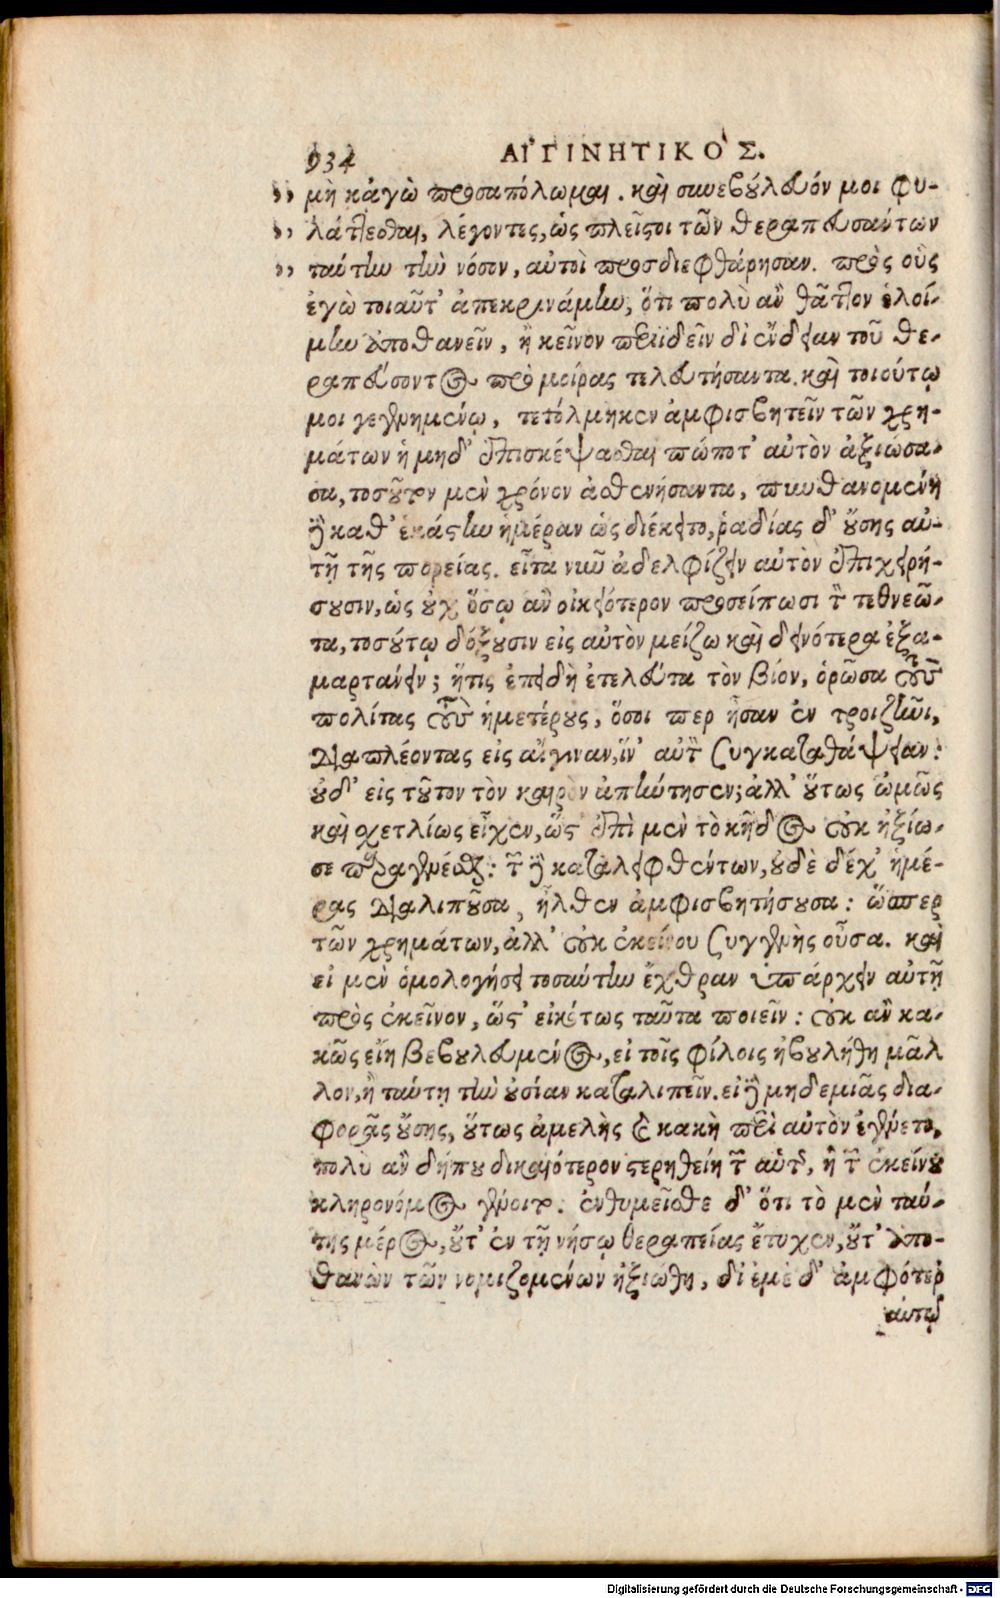 934 ΑἸΓΙΝΗΤΙΚΟ'Σ.
μὴ κἀγὼ προσαπόλωμαι. καὶ συνεβούλευόν μοι φυ-
λάττεσθαι, λέγοντες, ὡς πλεῖστοι τῶν θεραπευσάντων
ταύτην τὴν νόσον, αὐτοὶ προσδιεφθάρησαν. πρὸς οὓς
ἐγὼ τοιαῦτ' ἀπεκρινάμην, ὅτι πολὺ ἂν θᾶττον ἑλοί-
μην ἀποθανεῖν, ἢ κεῖνον περιϊδεῖν δι' ἔνδειαν τοῦ θε-
ραπεύσοντος πρὸ μοίρας τελευτήσαντα. καὶ τοιούτῳ
μοι γεγενημένῳ, τετόλμηκεν ἀμφισβητεῖν τῶν χρη-
μάτων ἡ μηδ' ἐπισκέψασθαι πώποτ' αὐτὸν ἀξιώσα-
σα, τοσοῦτον μὲν χρόνον ἀσθενήσαντα, πυνθανομένη
δὲ καθ' ἑκάστην ἡμέραν ὡς διέκειτο, ῥαδίας δ' οὔσης αὐ-
τῇ τῆς πορείας. εἶτα νῦν ἀδελφίζειν αὐτὸν ἐπιχειρή-
σουσιν, ὡς οὐχ ὅσῳ ἂν οἰκειότερον προσείπωσι τὸν τεθνεῶ-
τα, τοσούτῳ δόξουσιν εἰς αὐτὸν μείζω καὶ δεινότερα ἐξα-
μαρτάνειν; ἥτις ἐπειδὴ ἐτελεύτα τὸν βίον, ὁρῶσα τοὺς
πολίτας τοὺς ἡμετέρους, ὅσοι περ ἦσαν ἐν τροιζῆνι,
διαπλέοντας εἰς αἴγιναν, ἵν' αὐτὸν συγκαταθάψειαν:
οὐδ' εἰς τοῦτον τὸν καιρὸν ἀπήντησεν; ἀλλ' οὕτως ὠμῶς
καὶ σχετλίως εἶχεν, ὥστ' ἐπὶ μὲν τὸ κῆδος οὐκ ἠξίω-
σε παραγενέσθαι: τῶν δὲ καταλειφθέντων, οὐδὲ δέχ' ἡμέ-
ρας διαλιποῦσα, ἦλθεν ἀμφισβητήσουσα: ὥσπερ
τῶν χρημάτων, ἀλλ' οὐκ ἐκείνου συγγενὴς οὖσα. καὶ
εἰ μὲν ὁμολογήσει τοσαύτην ἔχθραν ὑπάρχειν αὐτῇ
πρὸς ἐκεῖνον, ὥστ' εἰκότως ταῦτα ποιεῖν: οὐκ ἂν κα-
κῶς εἴη βεβουλευμένος, εἰ τοῖς φίλοις ἠβουλήθη μᾶλ
λον, ἢ ταύτῃ τὴν οὐσίαν καταλιπεῖν. εἰ δὲ μηδεμιᾶς δια-
φορᾶς οὔσης, οὕτως ἀμελὴς καὶ κακὴ περὶ αὐτὸν ἐγένετο,
πολὺ ἂν δήπου δικαιότερον στερηθείη τῶν αὑτῆς, ἢ τῶν ἐκείνου
κληρονόμος γένοιτο. ἐνθυμεῖσθε δ' ὅτι τὸ μὲν ταύ-
της μέρος, οὔτ' ἐν τῇ νήσῳ θεραπείας ἔτυχεν, οὔτ' ἀπο-
θανὼν τῶν νομιζομένων ἠξιώθη, δι' ἐμὲ δ' ἀμφότερα
αὐτῷ
Digitalisierung gefördert durch die Deutsche Forschungsgemeinschaft - DFG